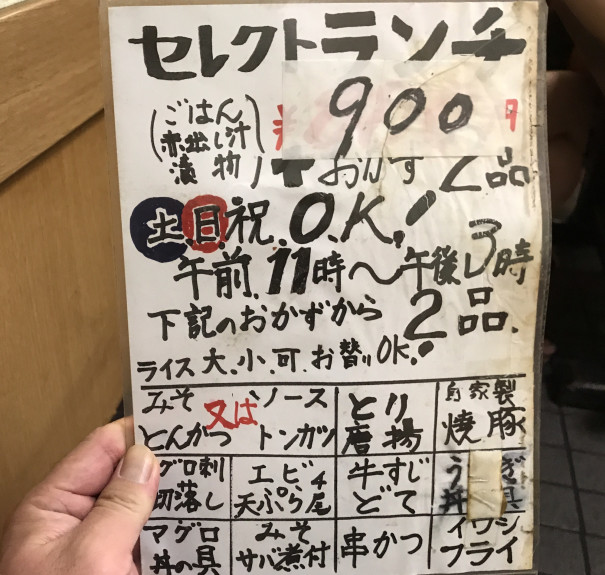 セレクトランチ
(ごはん 赤出し汁 漬物) 900
おかず 2品
土.日.祝.O.K.!
午前.11時〜午後3時
下記のおかずから2品.
ライス 大.小.可.お替りOK!
みそ 又は ソース とり 自家製
とんかつ トンカツ 唐揚 焼豚
グロ刺 エビ 4 牛すじ う ぎ
切落し 天ぷら尾 どて 丼 具
マグロ みそ 串かつ イワシ
丼の具 サバ煮付 フライ